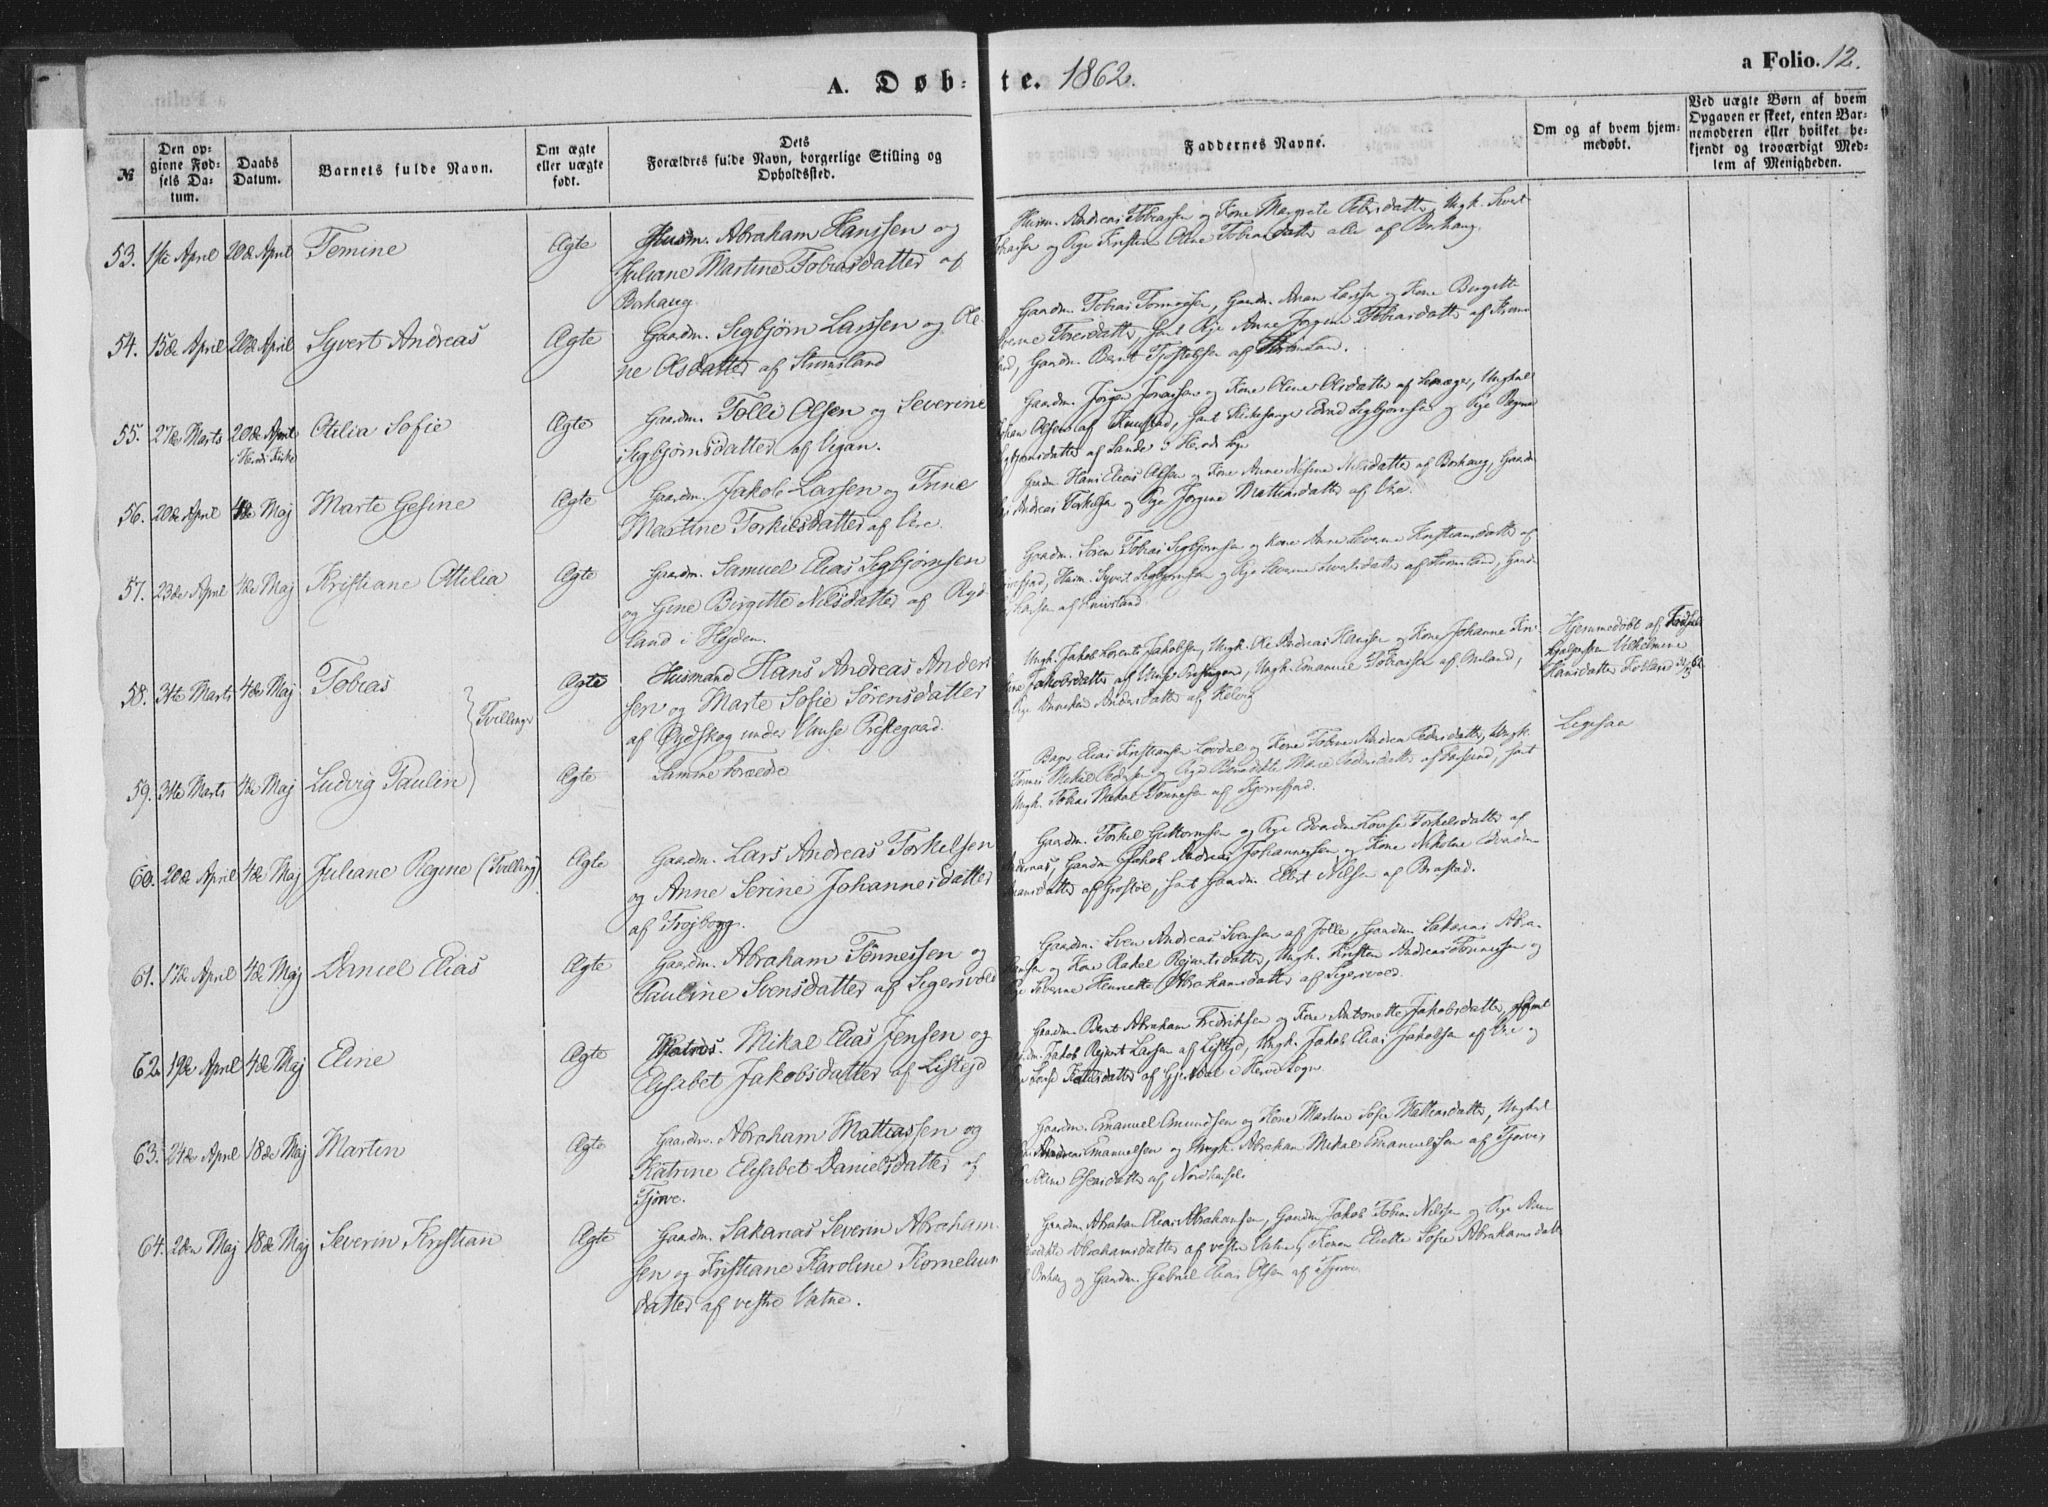 A. Døb-te. 1862.
a Folio. 12.
№
Den op-
givne Fød-
sels Da-
tum.
Daabs
Datum.
Barnets fulde Navn.
Om ægte
eller uægte
født.
Dets
Forældres fulde Navn, borgerlige Stilling og
Opholdssted.
Faddernes Navne.
Om og af hvem hjem-
medøbt.
Ved uægte Børn af hvem
Opgaven er skeet, enten Bar-
nemoderen eller hvilket be-
kjendt og troværdigt Med-
lem af Menigheden.
53. 1ste April 20de April Temine Ægte Husm. Abraham Hanssen og
Juliane Martine Tobiasdatter af
Borhaug.
Husm. Andreas Tobiassen og Kone Margrete Pedersdatter, Ungk. Sivert
Tobiassen og Pige Kirstine Oline Tobiasdatter alle af Borhaug.
54. 15de April 20de April Syvert Andreas Ægte Gaardm. Sigbjørn Larssen og Ole-
ne Olsdatter af Strømsland
Gaardm. Tobias Tønnessen, Gaardm. Anan Larssen og Kone Birgitte
Severine datter, samt Pige Anne Jørgine Tobiasdatter af Stroms-
land, Gaardm. Bernt Tjøstelsen af
55. 27de Marts 20de April Otilia Sofie Ægte Gaardm. Tolli Olsen og Severine
i Herads Kirke
Sigbjørnsdatter af Vigan.
Gaardm. Jørgen Jonassen og Kone Oline Olsdatter af , Ungkarl
Johan Olsen af , samt Kirkesanger Edvard Sigbjørnsen og Pige Regine
Sigbjørnsdatter af Lande i Herads Sogn
56. 20de April 4de Maj Marte Gesine Ægte Gaardm. Jakob Larsen og Trine
Martine Torkildsdatter af Vere.
Gaardm. Hans Elias Olsen og Kone Anne Nilsdatter af Borhaug, Gaardm.
Andreas Torkelsen og Pige Jørgine Mattiasdatter af Vere.
57. 23de April 4de Maj Kristiane Ottilia Ægte Gaardm. Samuel Elias Sigbjørnsen
og Gine Birgitte Nilsdatter af Ryd-
land i Højden.
Gaardm. Søren Tobias Sigbjørnsen og Kone Anne Severine Kristiansdatter af
, Husm. Syvert Sigbjørnsen og Pige Severine Sivertsdatter af Strømsland, Gaardm.
Larsen af
58. 3die Marts 4de Maj Tobias Ægte Husmand Hans Andreas Ander-
sen og Marte Sofie Sørensdatter
af Øydskog under Vanse Prestegaard.
Tvillinger
Ungk. Jakob Lorents Jakobsen, Ungk. Ole Andreas Hanssen og Kone Johanne Kri-
stine Jakobsdatter af Vanse Prestegaard, Ungk. Emanuel Tobiassen af Omland,
Pige Anneken Andersdatter af Kelvig
Hjemmedøbt af Fødsels-
hjælpersken Vilhelmine
Hansdatter
59. 3die Marts 4de Maj Ludvig Paulin Ægte Samme Forældre
Bager Elias Kristiansen Lovdal og Kone Tobine Andrea Pedersdatter, Ungk.
Tønnes Mikal Pedersen og Pige Benedikte Marie Pedersdatter af Farsund, samt
Ungk. Tobias Mikal Tønnesen af Kjørrefjord.
Ligesaa
60. 20de April 4de Maj Juliane Regine (Tvilling) Ægte Gaardm. Lars Andreas Torkelsen
og Anne Serine Johannesdatter
af Trøjborg.
Gaardm. Torkel Guttormsen og Pige Edvardine Lovise Torkelsdatter af
, Gaardm. Jakob Andreas Johannessen og Kone Nikoline
datter af Grostøl, samt Gaardm. Elbert Nilsen af Brastad.
61. 17de April 4de Maj Daniel Elias Ægte Gaardm. Abraham Tønnessen og
Pauline Svensdatter af Sigersvold
Gaardm. Sven Andreas Svensen af Jølle, Gaardm. Sakarias Abra-
hamsen og Kone Rakel Rejertsdatter, Ungk. Kristen Andreas Tønnessen og
Pige Severine Henriette Abrahamsdatter af Sigersvold.
62. 19de April 4de Maj Eline Ægte Matros. Mikal Elias Jensen og
Elisabet Jakobsdatter af Listejd
Gaardm. Bernt Abraham Fredriksen og Kone Antonette Jakobsdatter, samt
Jakob Rejert Larsen af Listejd, Ungk. Jakob Elias Jakobsen af Vere og
Lovise Ketelsdatter af Gjerdal i Herads Sogn
63. 24de April 18de Maj Martin Ægte Gaardm. Abraham Mattiassen og
Katrine Elisabet Danielsdatter af
Tjørve.
Gaardm. Emanuel Omundsen og Kone Martine Sofie Mattiasdatter, Ungkarl
Andreas Emanuelsen og Ungk. Abraham Mikal Emanuelssen af Tjørve,
Oline datter af Nordhassel.
64. 2den Maj 18de Maj Severin Kristian Ægte Gaardm. Sakarias Severin Abraham-
sen og Kristiane Karoline Kornelius
datter af vestre Vatne.
Gaardm. Abraham Elias Abrahamsen, Gaardm. Jakob Tobias Nilsen og Pige Anne
Benedikte Abrahamsdatter af vestre Vatne, Konen Eliette Sofie Abrahamsdatter
af Borhaug og Gaardm. Gabriel Elias Olsen af Tjørve.